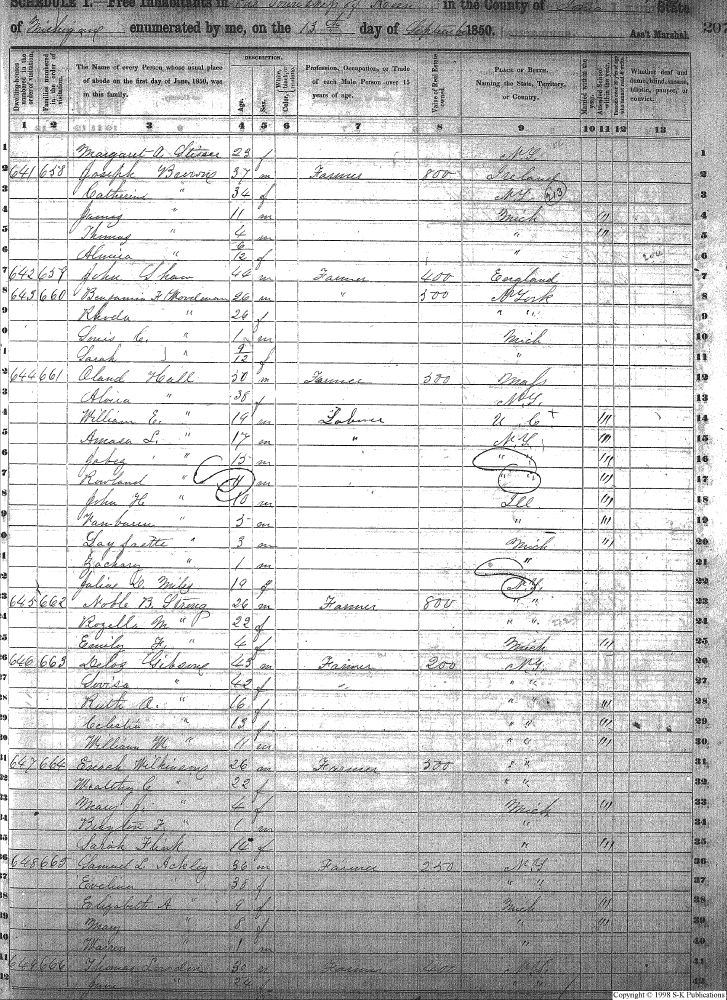 SCHEDULE I.—Free Inhabitants in the Township of in the County of State
of Michigan enumerated by me, on the 13th day of September 1850. Ass't Marshal. 207
Dwelling-houses numbered in the order of visitation.
Families numbered in the order of visitation.
The Name of every Person whose usual place of abode on the first day of June, 1850, was in this family.
DESCRIPTION.
Age. Sex. Color,
Profession, Occupation, or Trade of each Male Person over 15 years of age.
Value of Real Estate owned.
PLACE OF BIRTH. Naming the State, Territory, or Country.
Married within the year.
Whether deaf and dumb, blind, insane, idiotic, pauper, or convict.
1 2 3 4 5 6 7 8 9 10 11 12 13
1 Margaret A. 23 f N.Y. 1
641 658 Joseph 37 m Farmer 800 Ireland 2
Catherine " 34 f N.Y. 213 3
James " 11 m Mich 4
Thomas " 4 m " 5
Almira " 6/12 f " 6
642 659 John Shaw 44 m Farmer 400 England 7
643 660 Benjamin F. Woodman 26 m " 500 N York 8
Rhoda " 24 f " " 9
Louis C. " 1 m Mich 10
Sarah J " 9/12 f " 11
644 661 Oland Hall 50 m Farmer 500 Mass 12
Alvira " 38 f N.Y. 13
William E. " 19 m Laborer U C 14
Amasa L. " 17 m " N.Y. 15
Jabez " 15 m " " 16
Rowland " 11 m " " 17
John H " 10 m Ill 18
Vanburen " 5 m " 19
Layfaette " 3 m Mich 20
Zachary " 1 m " 21
Julius C. Miles 19 N.Y. 22
645 662 Noble B. Strong 26 m Farmer 800 " " 23
Rozella M " 22 f " " 24
Emily F. " 4 f Mich 25
646 663 Delos Gibson 43 m Farmer 200 N.Y 26
Lovisa " 42 f " " " 27
Ruth A. " 16 f " " 28
Celestia " 13 f " " 29
William M " 11 m " " 30
647 664 Enoch Wilkinson 26 m Farmer 500 " " 31
Wealthy C " 22 f " " 32
Mary J. " 4 f Mich 33
F. " 1 m " 34
Sarah 14 f " 35
648 665 Samuel L Ackley 36 m Farmer 250 N.Y 36
Evelina 38 f " " 37
Elizabeth A " 9 f Mich 38
Mary " 8 f " 39
Warren " 1 m " 40
649 666 Thomas 30 m Farmer 41
" 24 f " 42
Copyright © 1998 S-K Publications